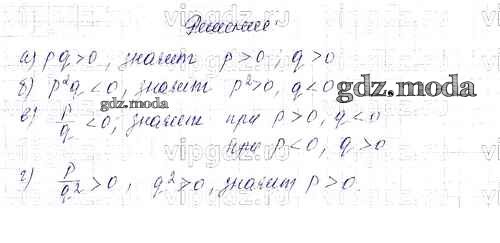 Решение
а) pq>0, значит p>0; q>0
б) p²q<0, значит p²>0, q<0
в) p/q <0; значит при p>0, q<0
при p<0, q>0
г) p/q² >0, q²>0, значит p>0.
gdz.moda
gdz.moda